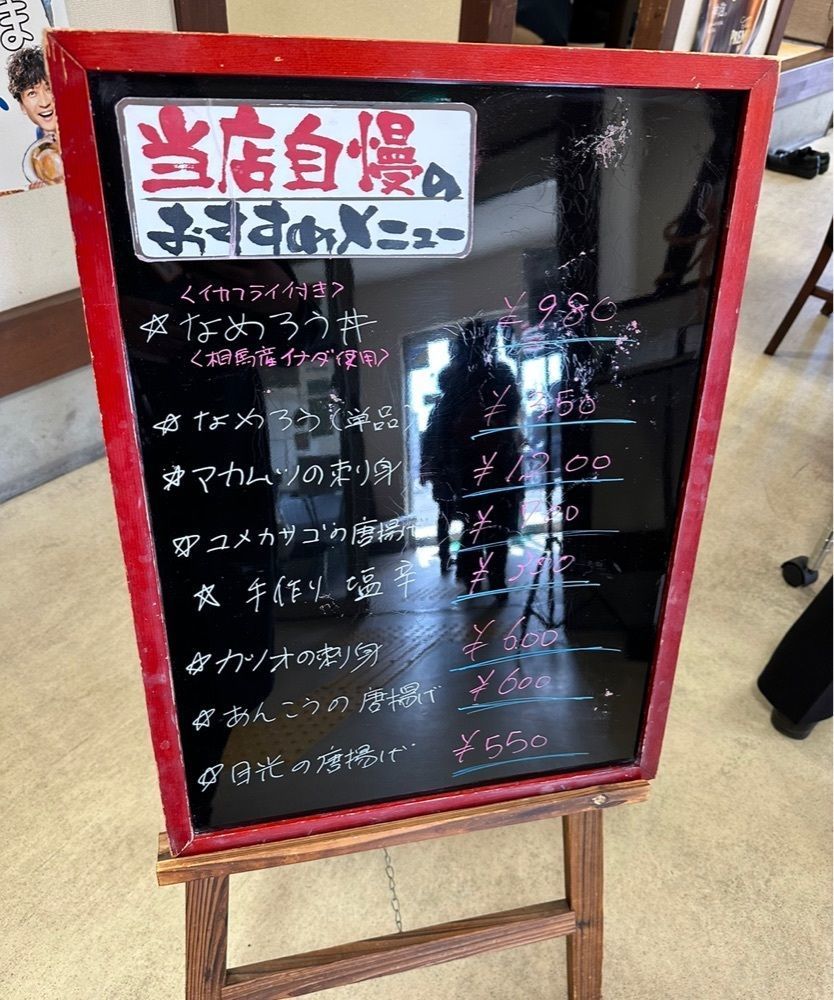 当店自慢の
おすすめメニュー
<イカフライ付き>
☆なめろう丼 ¥980
<相馬産イナダ使用>
☆なめろう(単品) ¥350
☆マカムツの刺り身 ¥1200
☆ユメカサゴの唐揚げ ¥
☆手作り塩辛 ¥300
☆カツオの刺り身 ¥600
☆あんこうの唐揚げ ¥600
☆目光の唐揚げ ¥550